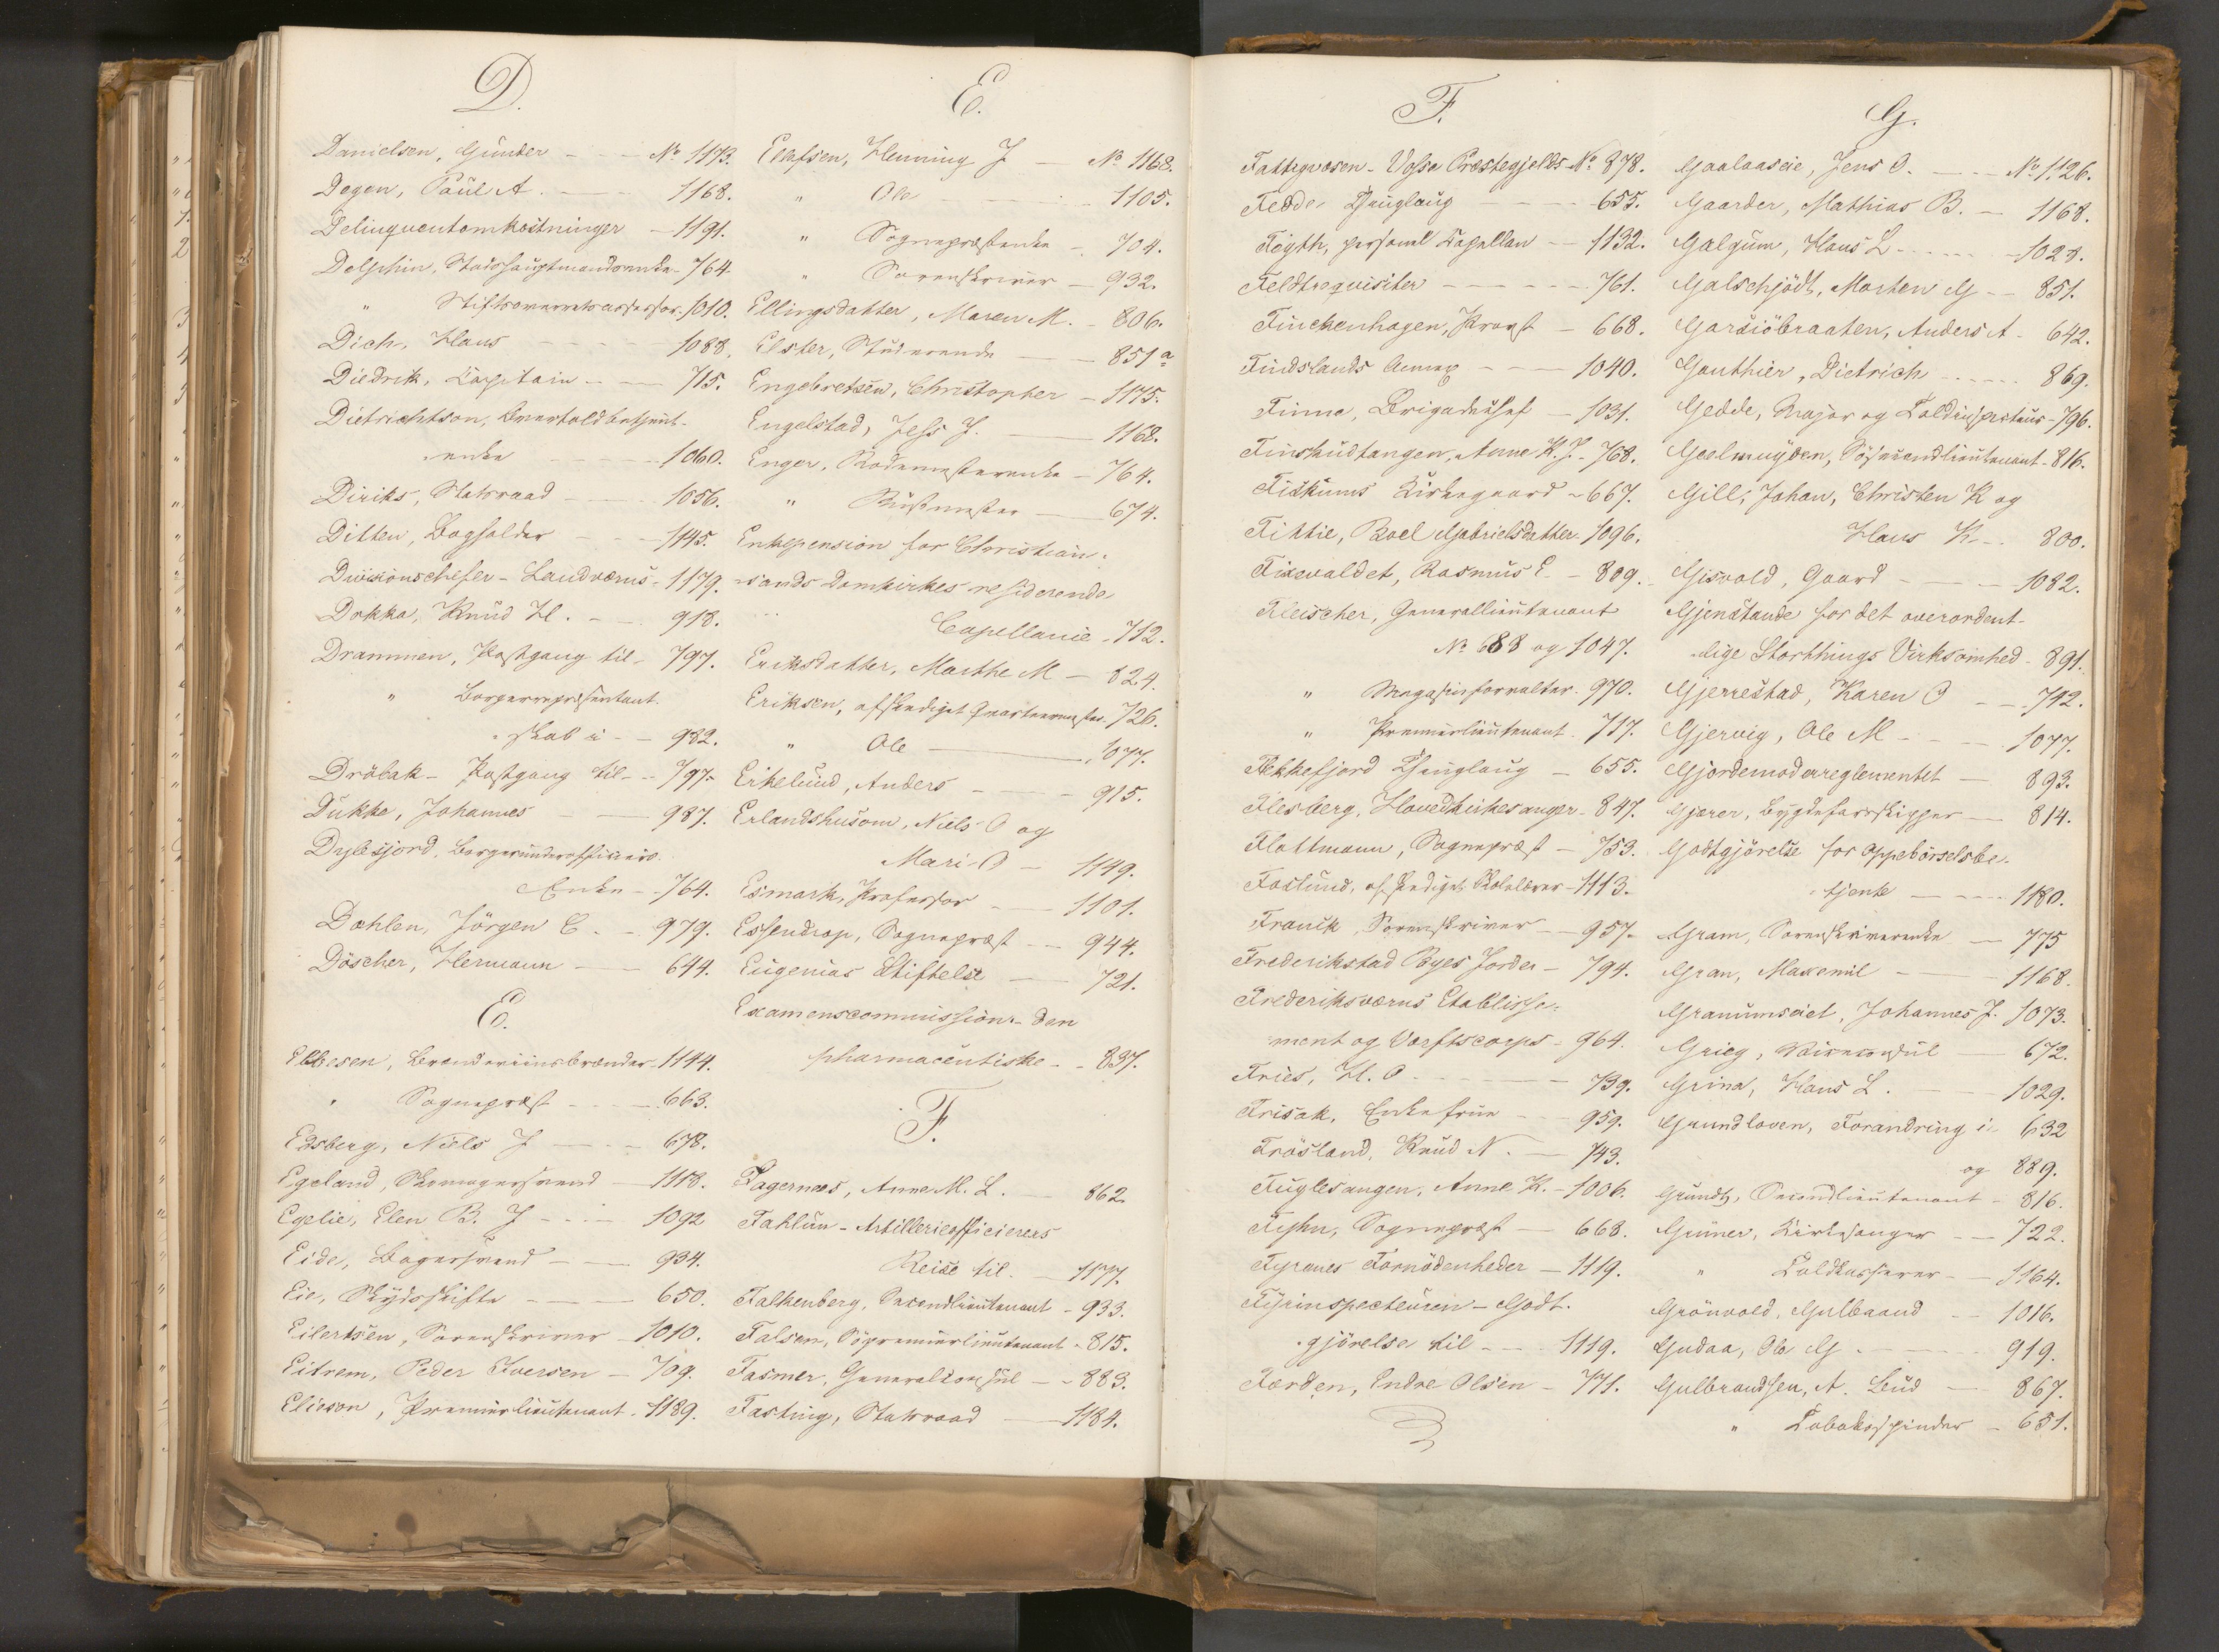 D.
Danielsen, Gunder - - No 1173.
Degen, Paul A. - - 1168.
Delinquentomkostninger - 1191.
Delphin, Stadshauptmandsenke - 764.
" Stiftsoverretsassessor. 1010.
Dich, Hans - - - 1088.
Diedrik, Capitain - - 715.
Dietrichtson, Overtoldbetjent-
-enke - - - 1060.
Diriks, Statsraad - - 1056.
Ditten, Bogholder - - 1145.
Divisionschefer - Landværns - 1179.
Dokka, Knud H. - - 918.
Drammen, Postgang til - 797.
" Borgerrepræsentant-
-skab i - - 982.
Dröbak - Postgang til - - 797.
Dukke, Johannes - - 987.
Dybesjord, Borgerunderofficiers-
Enke - - 764.
Dæhlen, Jörgen C. - - 979.
Döscher, Hermann - - 644.
E.
Ebbesen, Brændeviinsbrænder - 1144.
" Sognepræst - - 663.
Edsberg, Niels J - - 678.
Egeland, Skomagersvend - 1118.
Egelie, Elen B. J - - 1092
Eide, Bagersvend - - 934.
Eie, Skydsskifte - - - 650.
Eilertsen, Sorenskriver - 1010.
Eitrem, Peder Iversen - 709.
Elieson, Premierlieutenant - 1189.
E.
Ellefsen, Henning J - No 1168.
" Ole - - - 1105.
" Sognepræstenke - 704.
" Sorenskriver - 932.
Ellingsdatter, Maren M. - 806.
Elster, Studerende - - 851 a
Engebretsen, Christopher - 1175.
Engelstad, Jess J. - 1168.
Enger, Rodemesterenke - 764.
" Rustmester - 674.
Enkepension for Christian-
-sands Domkirkes residerende
Capellanie - 712.
Eriksdatter, Marthe M - 824.
Eriksen, afskediget Qvarteermester. 726.
" Ole - 1077.
Erkelund, Anders - - 915.
Erlandshusom, Niels O og
Mari O - 1149.
Esmark, Professor - - 1101.
Essendrop, Sognepræst - - 944.
Eugenias Stiftelse - 721.
Examenscommission - den
pharmaceutiske - - 837.
F.
Fagernæs, Anne M. L. - 862.
Fahlun - Artillerieofficierers
Reise til - 1177.
Falkenberg, Secondlieutenant - 933.
Falsen, Söpremierlieutenant - 815.
Fasmer, Generalconsul - - 883.
Fasting, Statsraad - 1184.
F.
Fattigvæsen - Vosse Præstegjelds No 878.
Fedde Thinglaug - - - 655.
Feigth, personel Capellan - 1132.
Feldtrequisiter - - - 761.
Finckenhagen, Provst - 668.
Findslands Annex - - - 1040.
Finne, Brigadechef - 1031.
Finskudtangen, Anne K. P. - 768.
Fiskums Kirkegaard - 667.
Fittie, Boel Gabrielsdatter. 1096.
Fixevaldet, Rasmus E. - 809.
Fleischer, Generallieutenant
No 688 og 1047.
" Magasinforvalter. 970.
" Premierlieutenant. 717.
Flekkefjord Thinglaug - 655.
Flesberg, Hovedkirkesanger - 847.
Flottmann, Sognepræst - 753.
Foslund, afskediget Skolelærer - 1113.
Franck, Sorenskriver - 957.
Frederikstad Byes Jorder - 794.
Frederiksværns Etablisse-
-ment og Værftscorps - 964.
Fries, H. O - - - 739.
Frisak, Enkefrue - - 959.
Frösland, Knud N. - 743.
Fuglesangen, Anne K. - 1006.
Fyhn, Sognepræst - 668.
Fyrenes Fornödenheder - 1119.
Fyrinspecteuren - Godt-
-gjörelse til - - - 1119.
Færden, Endre Olsen - 771.
G.
Gaalaaseie, Jens O. - - No 1126.
Gaarder, Mathias B. - 1168.
Galgum, Hans L - - - 1028.
Galschjödt, Morten G - - 851.
Garsiöbraaten, Anders A - 642.
Gauthier, Dietrich - - - 869.
Gedde, Major og Toldinspecteur - 796.
Geelmuyden, Sösecondlieutenant - 816.
Gill, Johan, Christen K og
Hans K - - 800.
Gisvold, Gaard - - - 1082.
Gjenstande for det overordent-
-lige Storthings Virksomhed - 891.
Gjerrestad, Karen O - - 742.
Gjervig, Ole M - - 1077.
Gjordemoderreglementet - 893.
Gjærer, Bygdefarsskipper - 814.
Godtgjörelse for Oppebörselsbe-
-tjente - - - 1180.
Gram, Sorenskriverenke - 775
Gran, Maxemil - - 1168.
Granumseiet, Johannes J. 1073.
Grieg, Viceconsul - 672.
Grina, Hans L. - - 1029.
Grundloven, Forandring i - 632
og 889.
Grundt, Secondlieutenant - 816.
Grüner, Kirkesanger - - 722.
" Toldkasserer - - 1164.
Grönvold, Gulbrand - - 1016.
Gudaa, Ole G - - - 919.
Gulbrandsen, A. Bud - 867.
" Tobaksspinder - 651.